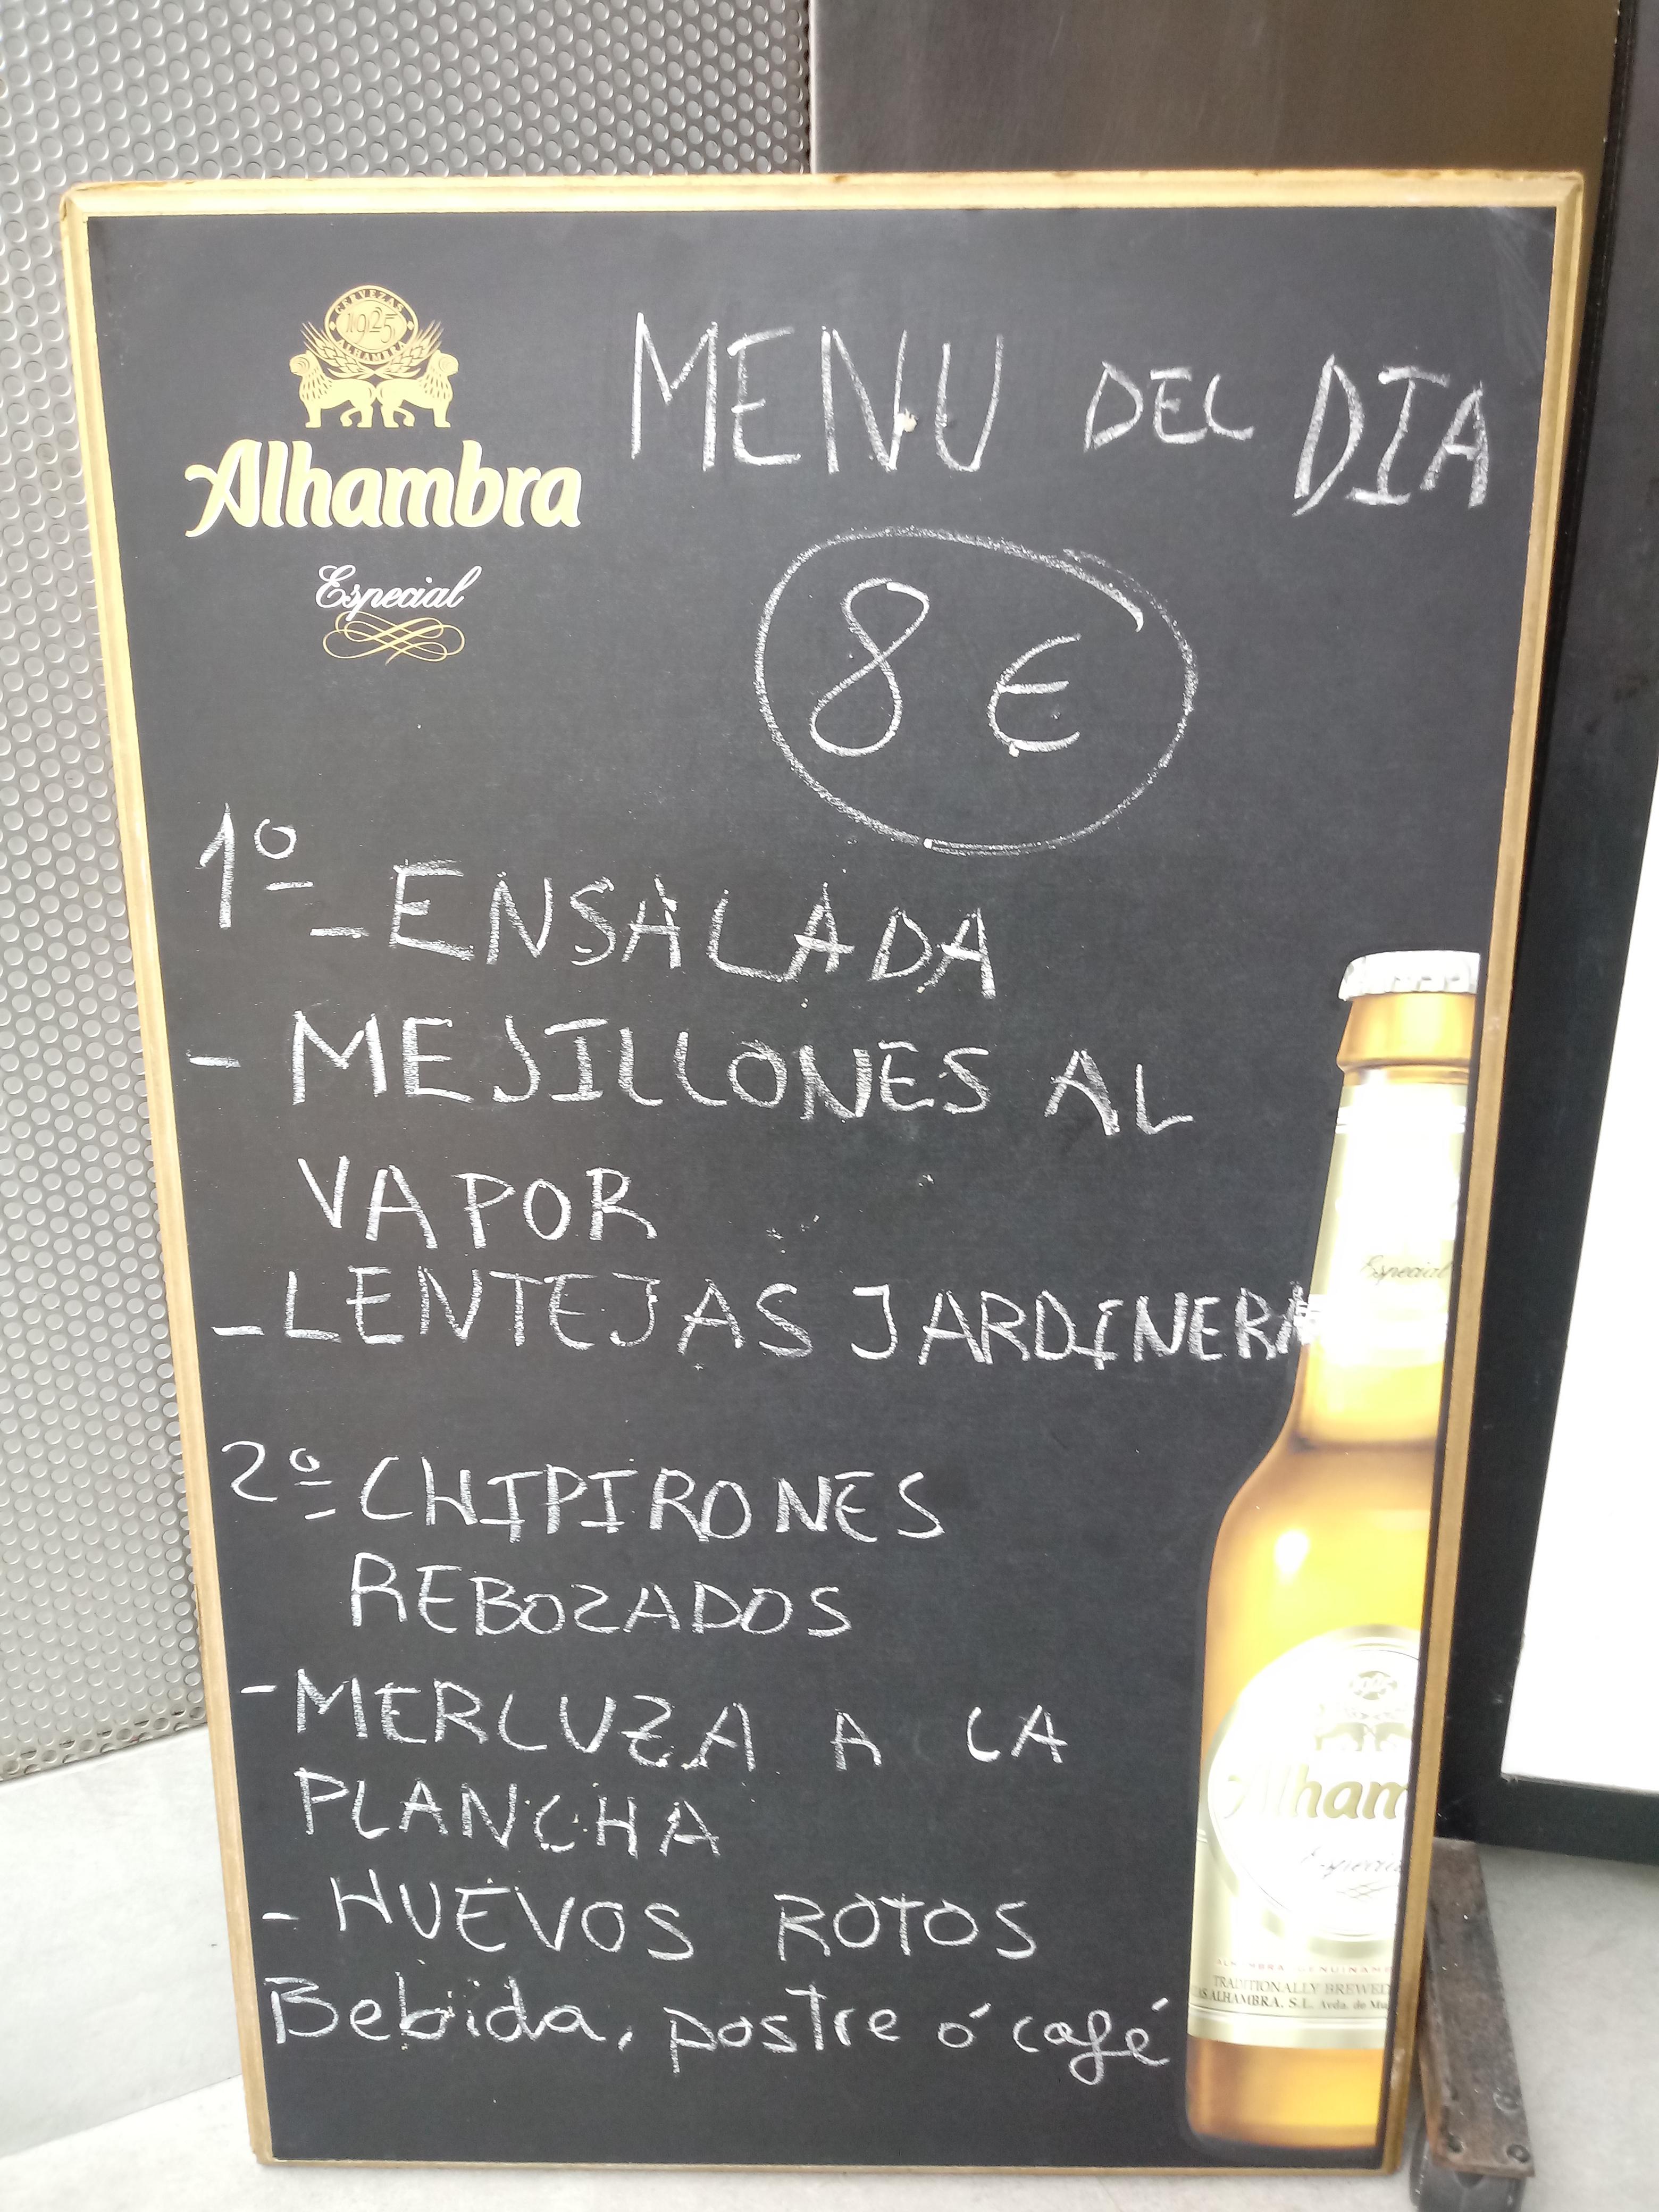 CERVEZAS
1925
ALHAMBRA
Alhambra
Especial
MENU DEL DIA
8 €
1º - ENSALADA
- MEJILLONES AL
VAPOR
- LENTEJAS JARDINERA
2º - CHIPIRONES
REBOZADOS
- MERLUZA A LA
PLANCHA
- HUEVOS ROTOS
Bebida, postre ó café
Especial
Alham
Especial
TRADITIONALLY BREWED
AS ALHAMBRA, S.L. Avda. de Mu